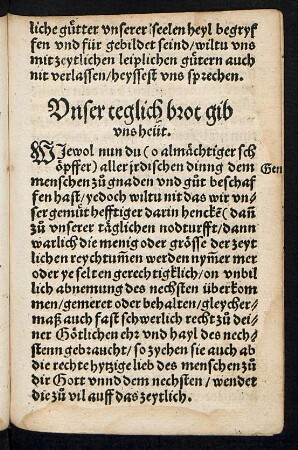 liche gůtter vnserer seelen heyl begryf
fen vnd für gebildet seind/wiltu vns
mit zeytlichen leiplichen gütern auch
nit verlassen/heyssest vns sprechen.
Vnser teglich brot gib
vns heüt.
WJewol nun du (o almächtiger sch
öpffer) aller jrdischen dinng dem
Gen
menschen zů gnaden vnd gůt beschaf
fen hast/yedoch wiltu nit das wir vn
ser gemüt hefftiger darin henckē (dañ
zů vnserer täglichen nodturfft/dann
warlich die menig oder grösse der zeyt
lichen reychtum̃en werden nym̃er mer
oder ye selten gerechtigklich/on vnbil
lich abnemung des nechsten überkom
men/gemeret oder behalten/gleycher-
maß auch fast schwerlich recht zů dei-
ner Götlichen ehr vnd hayl des nech-
stenn gebraucht/so zyehen sie auch ab
die rechte hytzige lieb des menschen zů
dir Gott vnnd dem nechsten/wendet
die zů vil auff das zeytlich.